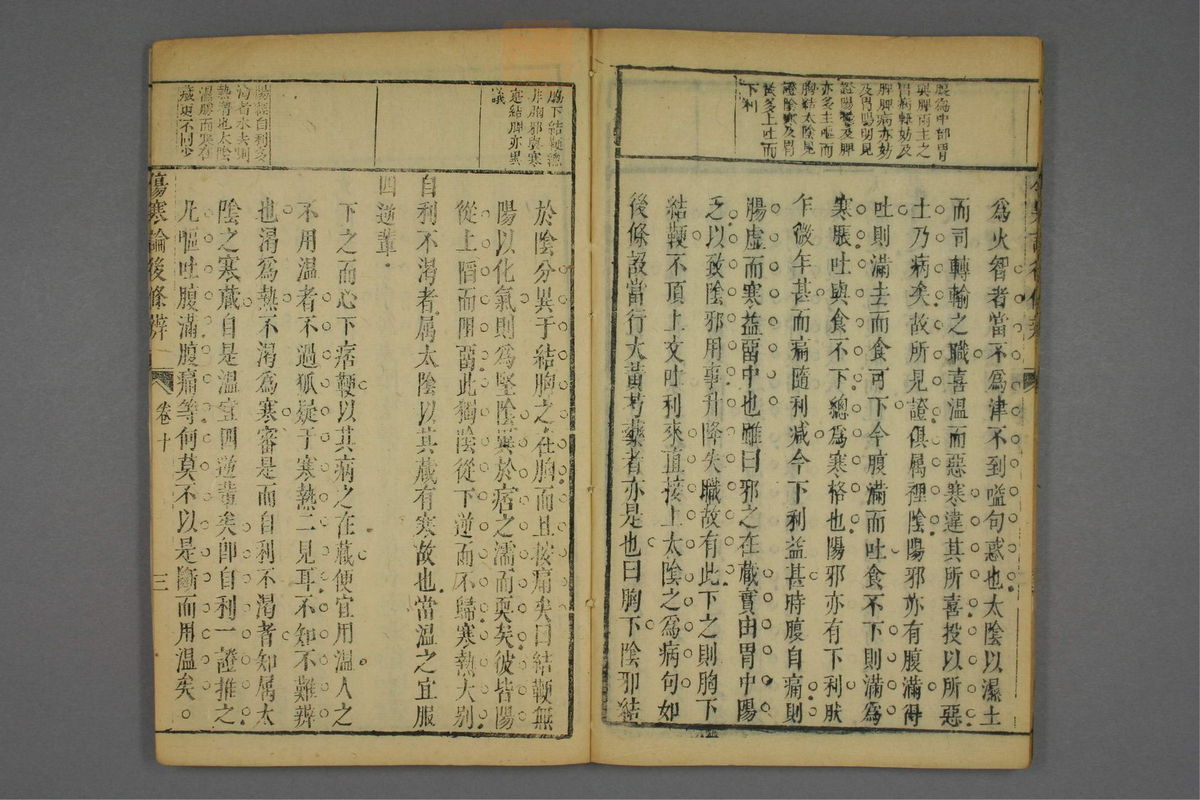 為火智者當不為津不到嗌句惑也太陰以濕土
而司轉輸之職喜溫而惡寒違其所喜投以所惡
土乃病矣故所見證俱屬裡陰陽邪亦有腹滿得
吐則滿去而食可下今腹滿而吐食不下則滿為
寒脹吐與食不下總為寒格也陽邪亦有下利腹
乍微乍甚而痛隨利減今下利益甚時腹自痛則
腸虛而寒益留中也雖曰邪之在藏實由胃中陽
乏以致陰邪用事升降失職故有此下之則胸下
結鞕不頂上文吐利來直接上太陰之為病句如
後條設當行大黃芍藥者亦是也曰胸下陰邪結
於陰分異于結胸之在胸而且按痛矣曰結鞕無
陽以化氣則為堅陰異於痞之濡而耎矣彼皆陽
從上陷而阻留此獨陰從下逆而不歸寒熱大別
自利不渴者屬太陰以其藏有寒故也當溫之宜服
四逆輩
下之而心下痞鞕以其病之在藏便宜用溫人之
不用溫者不過狐疑于寒熱二見耳不知不難辨
也渴為熱不渴為寒審是而自利不渴者知屬太
陰之寒藏自是溫宜四逆輩矣卽自利一證推之
凡嘔吐腹滿腹痛等何莫不以是斷而用溫矣
傷寒論後條辨
卷十
三
與脾兩主之
脾脾病亦妨
及胃陽明見
證陽發及脾
亦多主嘔而
胸結太陰見
證陰寒及胃
後多上吐而
下利
胸下結鞕總
非胸邪與寒
寒結脾亦異
議
陽經自利多
渴者水去則
熱謂也太陰
溫脾而寒在
藏更不同少